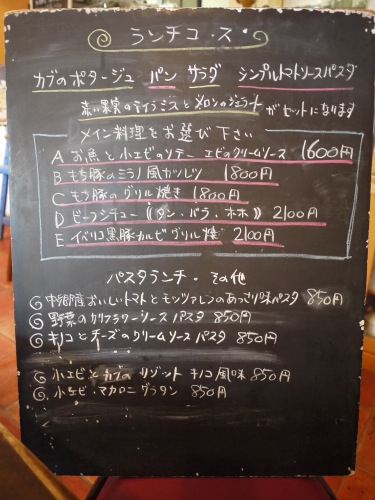 ランチコース
カブのポタージュ パン サラダ シンプルトマトソースパスタ
赤い果実のティラミスとメロンのジェラートがセットになります
メイン料理をお選び下さい
A お魚と小エビのソテー エビのクリームソース 1600円
B もち豚のミラノ風カツレツ 1800円
C もち豚のグリル焼き 1800円
D ビーフシチュー(タン・バラ・ホホ) 2100円
E イベリコ黒豚カルビグリル焼 2100円
パスタランチ・その他
中郷産おいしいトマトとモッツァレラのあっさり味パスタ 850円
野菜のカリフラワーソースパスタ 850円
キノコとチーズのクリームソースパスタ 850円
小エビとカブのリゾット キノコ風味 850円
小エビ・マカロニグラタン 850円